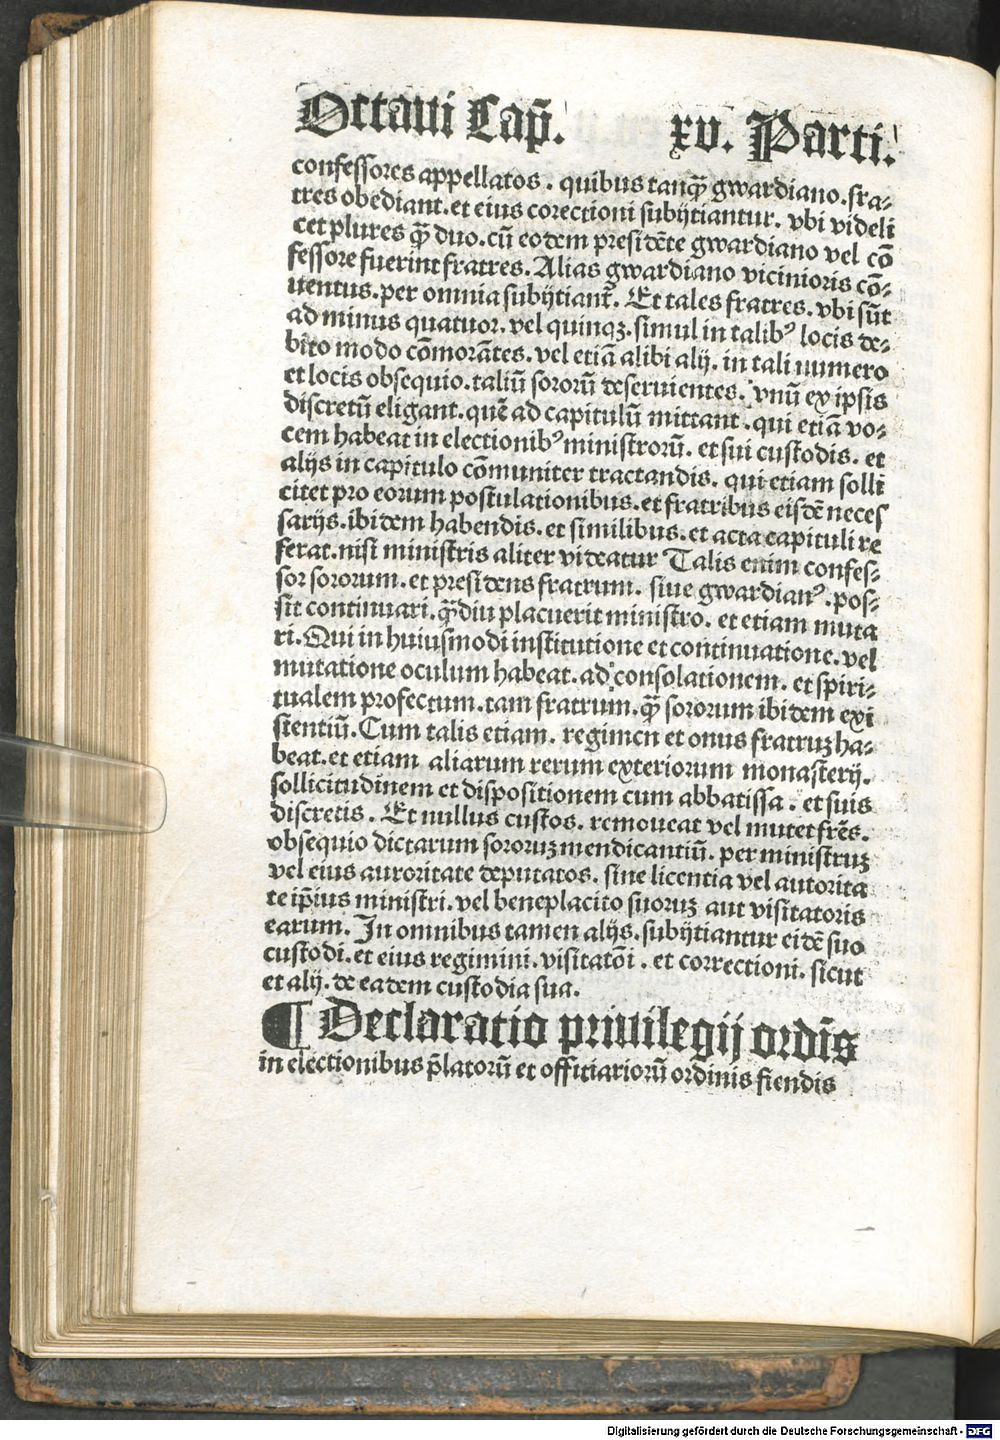 Octaui Cap̄. xv. Parti.
confessores appellatos. quibus tanq̄ gwardiano. fra-
tres obediant. et eius corectioni subijtiantur. vbi videli
cet plures q̄ duo. cū eodem presidēte gwardiano vel cō
fessore fuerint fratres. Alias gwardiano vicinioris cō-
uentus. per omnia subijtiant᷑. Et tales fratres. vbi sūt
ad minus quatuor. vel quinqꝫ. simul in talibꝰ locis de-
bito modo cōmorātes. vel etiā alibi alij. in tali numero
et locis obsequio. taliū sororū deseruientes. vnū ex ipsis
discretū eligant. quē ad capitulū mittant. qui etiā vo-
cem habeat in electionibꝰ ministrorū. et sui custodis. et
alijs in capitulo cōmuniter tractandis. qui etiam solli
citet pro eorum postulationibus. et fratribus eisdē neces
sarijs. ibidem habendis. et similibus. et acta capituli re
ferat. nisi ministris aliter videatur Talis enim confes-
sor sororum. et presidens fratrum. siue gwardianꝰ. pos-
sit continuari. q̄diu placuerit ministro. et etiam muta
ri. Qui in huiusmodi institutione et continuatione. vel
mutatione oculum habeat. ad consolationem. et spiri-
tualem profectum. tam fratrum. q̄ sororum ibidem exi
stentiū. Cum talis etiam. regimen et onus fratruꝫ ha-
beat. et etiam aliarum rerum exteriorum monasterij.
sollicitudinem et dispositionem cum abbatissa. et suis
discretis. Et nullus custos. remoueat vel mutet fr̄es.
obsequio dictarum sororuꝫ mendicantiū. per ministruꝫ
vel eius auroritate deputatos. sine licentia vel autorita
te ip̄ius ministri. vel beneplacito suoruꝫ aut visitatoris
earum. In omnibus tamen alijs. subijtiantur eidē suo
custodi. et eius regimini. visitatōi. et correctioni. sicut
et alij. de eadem custodia sua.
¶ Declaratio priuilegij ordīs
in electionibus p̄latorū et offitiariorū ordinis fiendis
Digitalisierung gefördert durch die Deutsche Forschungsgemeinschaft - DFG